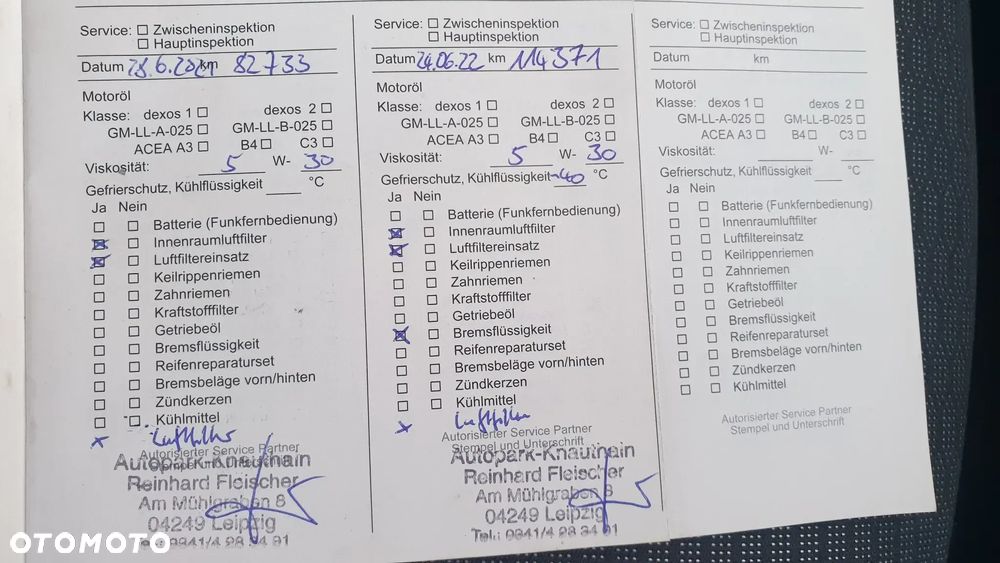 Service: ☐ Zwischeninspektion
☐ Hauptinspektion
Datum 28.6.2021 km 82733
Motoröl
Klasse: dexos 1 ☐ dexos 2 ☐
GM-LL-A-025 ☐ GM-LL-B-025 ☐
ACEA A3 ☐ B4 ☐ C3 ☐
Viskosität: 5 W- 30
Gefrierschutz, Kühlflüssigkeit ____ °C
Ja Nein
☐ ☐ Batterie (Funkfernbedienung)
☒ ☐ Innenraumluftfilter
☒ ☐ Luftfiltereinsatz
☐ ☐ Keilrippenriemen
☐ ☐ Zahnriemen
☐ ☐ Kraftstofffilter
☐ ☐ Getriebeöl
☐ ☐ Bremsflüssigkeit
☐ ☐ Reifenreparaturset
☐ ☐ Bremsbeläge vorn/hinten
☐ ☐ Zündkerzen
☐ ☐ Kühlmittel
x Luftfilter
Autorisierter Service Partner
Autopark-Knauthain
Reinhard Fleischer
Am Mühlgraben 8
04249 Leipzig
Tel.: 0341/4 28 34 91
Service: ☐ Zwischeninspektion
☐ Hauptinspektion
Datum 24.06.22 km 114371
Motoröl
Klasse: dexos 1 ☐ dexos 2 ☐
GM-LL-A-025 ☐ GM-LL-B-025 ☐
ACEA A3 ☐ B4 ☐ C3 ☐
Viskosität: 5 W- 30
Gefrierschutz, Kühlflüssigkeit -40 °C
Ja Nein
☐ ☐ Batterie (Funkfernbedienung)
☒ ☐ Innenraumluftfilter
☒ ☐ Luftfiltereinsatz
☐ ☐ Keilrippenriemen
☐ ☐ Zahnriemen
☐ ☐ Kraftstofffilter
☐ ☐ Getriebeöl
☒ ☐ Bremsflüssigkeit
☐ ☐ Reifenreparaturset
☐ ☐ Bremsbeläge vorn/hinten
☐ ☐ Zündkerzen
☐ ☐ Kühlmittel
x Luftfilter
Autorisierter Service Partner
Stempel und Unterschrift
Autopark-Knauthain
Reinhard Fleischer
Am Mühlgraben 8
04249 Leipzig
Tel.: 0341/4 28 34 91
Service: ☐ Zwischeninspektion
☐ Hauptinspektion
Datum km
Motoröl
Klasse: dexos 1 ☐ dexos 2 ☐
GM-LL-A-025 ☐ GM-LL-B-025 ☐
ACEA A3 ☐ B4 ☐ C3 ☐
Viskosität: ____ W- ____
Gefrierschutz, Kühlflüssigkeit ____ °C
Ja Nein
☐ ☐ Batterie (Funkfernbedienung)
☐ ☐ Innenraumluftfilter
☐ ☐ Luftfiltereinsatz
☐ ☐ Keilrippenriemen
☐ ☐ Zahnriemen
☐ ☐ Kraftstofffilter
☐ ☐ Getriebeöl
☐ ☐ Bremsflüssigkeit
☐ ☐ Reifenreparaturset
☐ ☐ Bremsbeläge vorn/hinten
☐ ☐ Zündkerzen
☐ ☐ Kühlmittel
Autorisierter Service Partner
Stempel und Unterschrift
OTOMOTO